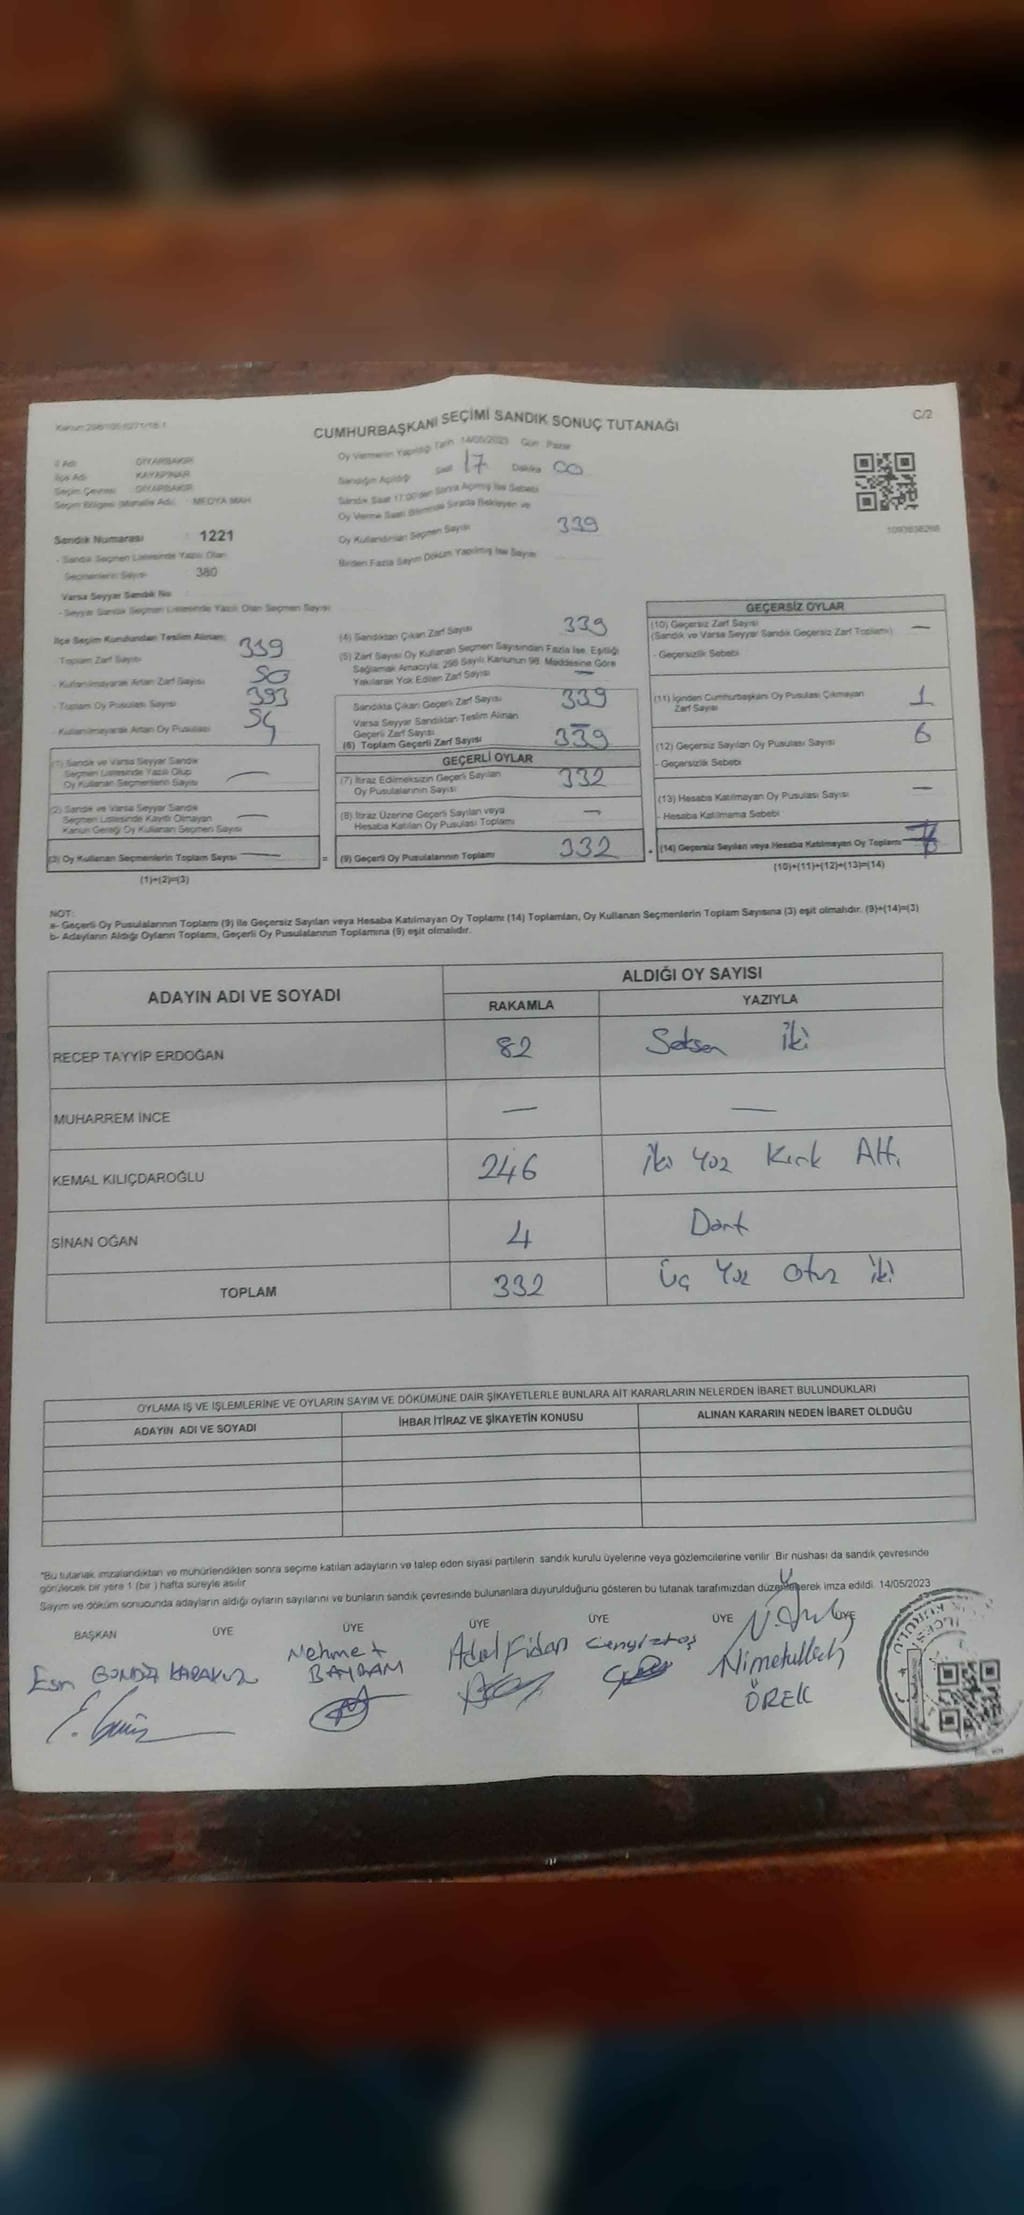 CUMHURBAŞKANI SEÇİMİ SANDIK SONUÇ TUTANAĞI
C/2
İl Adı DİYARBAKIR
İlçe Adı KAYAPINAR
Seçim Çevresi DİYARBAKIR
Seçim Bölgesi (Mahalle Adı) MEDYA MAH
Sandık Numarası 1221
- Sandık Seçmen Listesinde Yazılı Olan
Seçmenlerin Sayısı 380
Varsa Seyyar Sandık No
- Seyyar Sandık Seçmen Listesinde Yazılı Olan Seçmen Sayısı
Oy Vermenin Yapıldığı Tarih 14/05/2023 Gün Pazar
Sandığın Açıldığı Saat 17 Dakika 00
Sandık Saat 17:00'den Sonra Açılmış İse Sebebi
Oy Verme Saati Bitiminde Sırada Bekleyen ve
Oy Kullandırılan Seçmen Sayısı 339
Birden Fazla Sayım Döküm Yapılmış İse Sayısı
İlçe Seçim Kurulundan Teslim Alınan:
- Toplam Zarf Sayısı
- Kullanılmayarak Artan Zarf Sayısı 50
- Toplam Oy Pusulası Sayısı 393
- Kullanılmayarak Artan Oy Pusulası 54
(1) Sandık ve Varsa Seyyar Sandık
Seçmen Listesinde Yazılı Olup
Oy Kullanan Seçmenlerin Sayısı —
(2) Sandık ve Varsa Seyyar Sandık
Seçmen Listesinde Kayıtlı Olmayan
Kanun Gereği Oy Kullanan Seçmen Sayısı —
(3) Oy Kullanan Seçmenlerin Toplam Sayısı —
(1)+(2)=(3)
(4) Sandıktan Çıkan Zarf Sayısı 339
(5) Zarf Sayısı Oy Kullanan Seçmen Sayısından Fazla İse, Eşitliği
Sağlamak Amacıyla, 298 Sayılı Kanunun 98. Maddesine Göre
Yakılarak Yok Edilen Zarf Sayısı —
Sandıkta Çıkan Geçerli Zarf Sayısı 339
Varsa Seyyar Sandıktan Teslim Alınan
Geçerli Zarf Sayısı —
(6) Toplam Geçerli Zarf Sayısı 339
GEÇERLİ OYLAR
(7) İtiraz Edilmeksizin Geçerli Sayılan
Oy Pusulalarının Sayısı 332
(8) İtiraz Üzerine Geçerli Sayılan veya
Hesaba Katılan Oy Pusulası Toplamı —
= (9) Geçerli Oy Pusulalarının Toplamı 332
GEÇERSİZ OYLAR
(10) Geçersiz Zarf Sayısı
(Sandık ve Varsa Seyyar Sandık Geçersiz Zarf Toplamı) —
- Geçersizlik Sebebi
(11) İçinden Cumhurbaşkanı Oy Pusulası Çıkmayan
Zarf Sayısı 1
(12) Geçersiz Sayılan Oy Pusulası Sayısı 6
- Geçersizlik Sebebi
(13) Hesaba Katılmayan Oy Pusulası Sayısı —
- Hesaba Katılmama Sebebi
+ (14) Geçersiz Sayılan veya Hesaba Katılmayan Oy Toplamı
(10)+(11)+(12)+(13)=(14)
NOT:
a- Geçerli Oy Pusulalarının Toplamı (9) ile Geçersiz Sayılan veya Hesaba Katılmayan Oy Toplamı (14) Toplamları, Oy Kullanan Seçmenlerin Toplam Sayısına (3) eşit olmalıdır. (9)+(14)=(3)
b- Adayların Aldığı Oyların Toplamı, Geçerli Oy Pusulalarının Toplamına (9) eşit olmalıdır.
ADAYIN ADI VE SOYADI ALDIĞI OY SAYISI
RAKAMLA YAZIYLA
RECEP TAYYİP ERDOĞAN 82 Seksen iki
MUHARREM İNCE — —
KEMAL KILIÇDAROĞLU 246 iki Yüz Kırk Altı
SİNAN OĞAN 4 Dört
TOPLAM 332 Üç Yüz Otuz iki
OYLAMA İŞ VE İŞLEMLERİNE VE OYLARIN SAYIM VE DÖKÜMÜNE DAİR ŞİKAYETLERLE BUNLARA AİT KARARLARIN NELERDEN İBARET BULUNDUKLARI
ADAYIN ADI VE SOYADI İHBAR İTİRAZ VE ŞİKAYETİN KONUSU ALINAN KARARIN NEDEN İBARET OLDUĞU
*Bu tutanak imzalandıktan ve mühürlendikten sonra seçime katılan adayların ve talep eden siyasi partilerin sandık kurulu üyelerine veya gözlemcilerine verilir. Bir nüshası da sandık çevresinde
görülecek bir yere 1 (bir) hafta süreyle asılır.
Sayım ve döküm sonucunda adayların aldığı oyların sayılarını ve bunların sandık çevresinde bulunanlara duyurulduğunu gösteren bu tutanak tarafımızdan düzenlenerek imza edildi. 14/05/2023
BAŞKAN ÜYE ÜYE ÜYE ÜYE ÜYE ÜYE
Mehmet BAYRAM
Adel Fidan
Nimetullah ÖREK